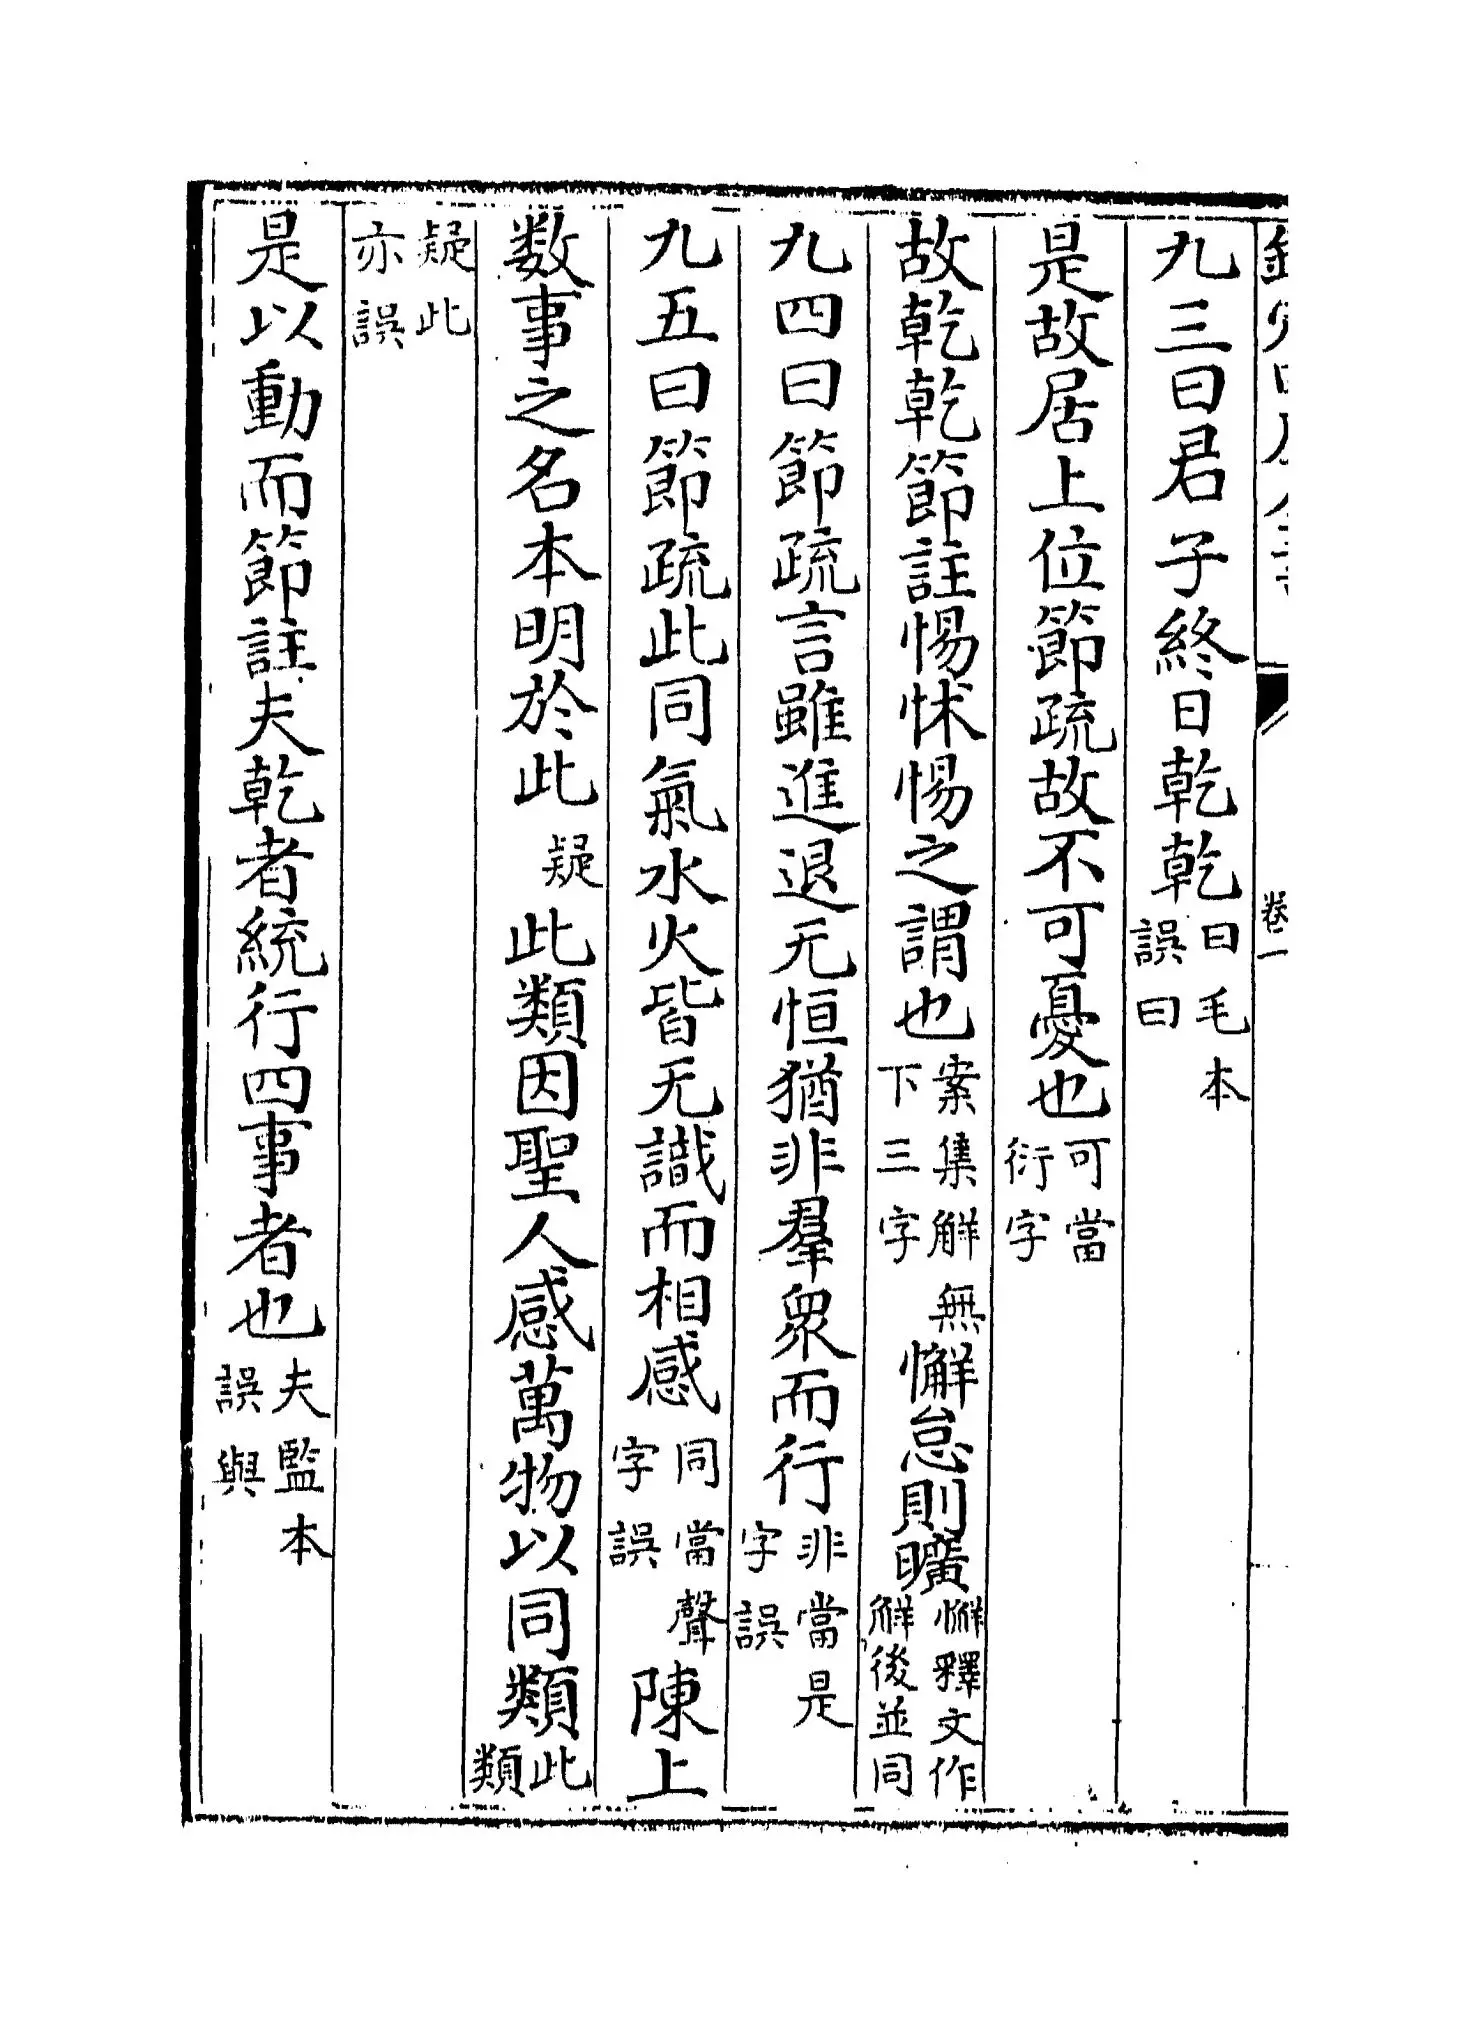 卷一
九三曰君子終日乾乾曰毛本誤曰
是故居上位節疏故不可憂也可當衍字
故乾乾節註惕怵惕之謂也案集解無下三字懈怠則曠懈釋文作解後並同
九四曰節疏言雖進退无恒猶非羣衆而行非當是字誤
九五曰節疏此同氣水火皆无識而相感同當聲字誤陳上
数事之名本明於此疑此類因聖人感萬物以同類此類
疑此亦誤
是以動而節註夫乾者統行四事者也夫監本誤與